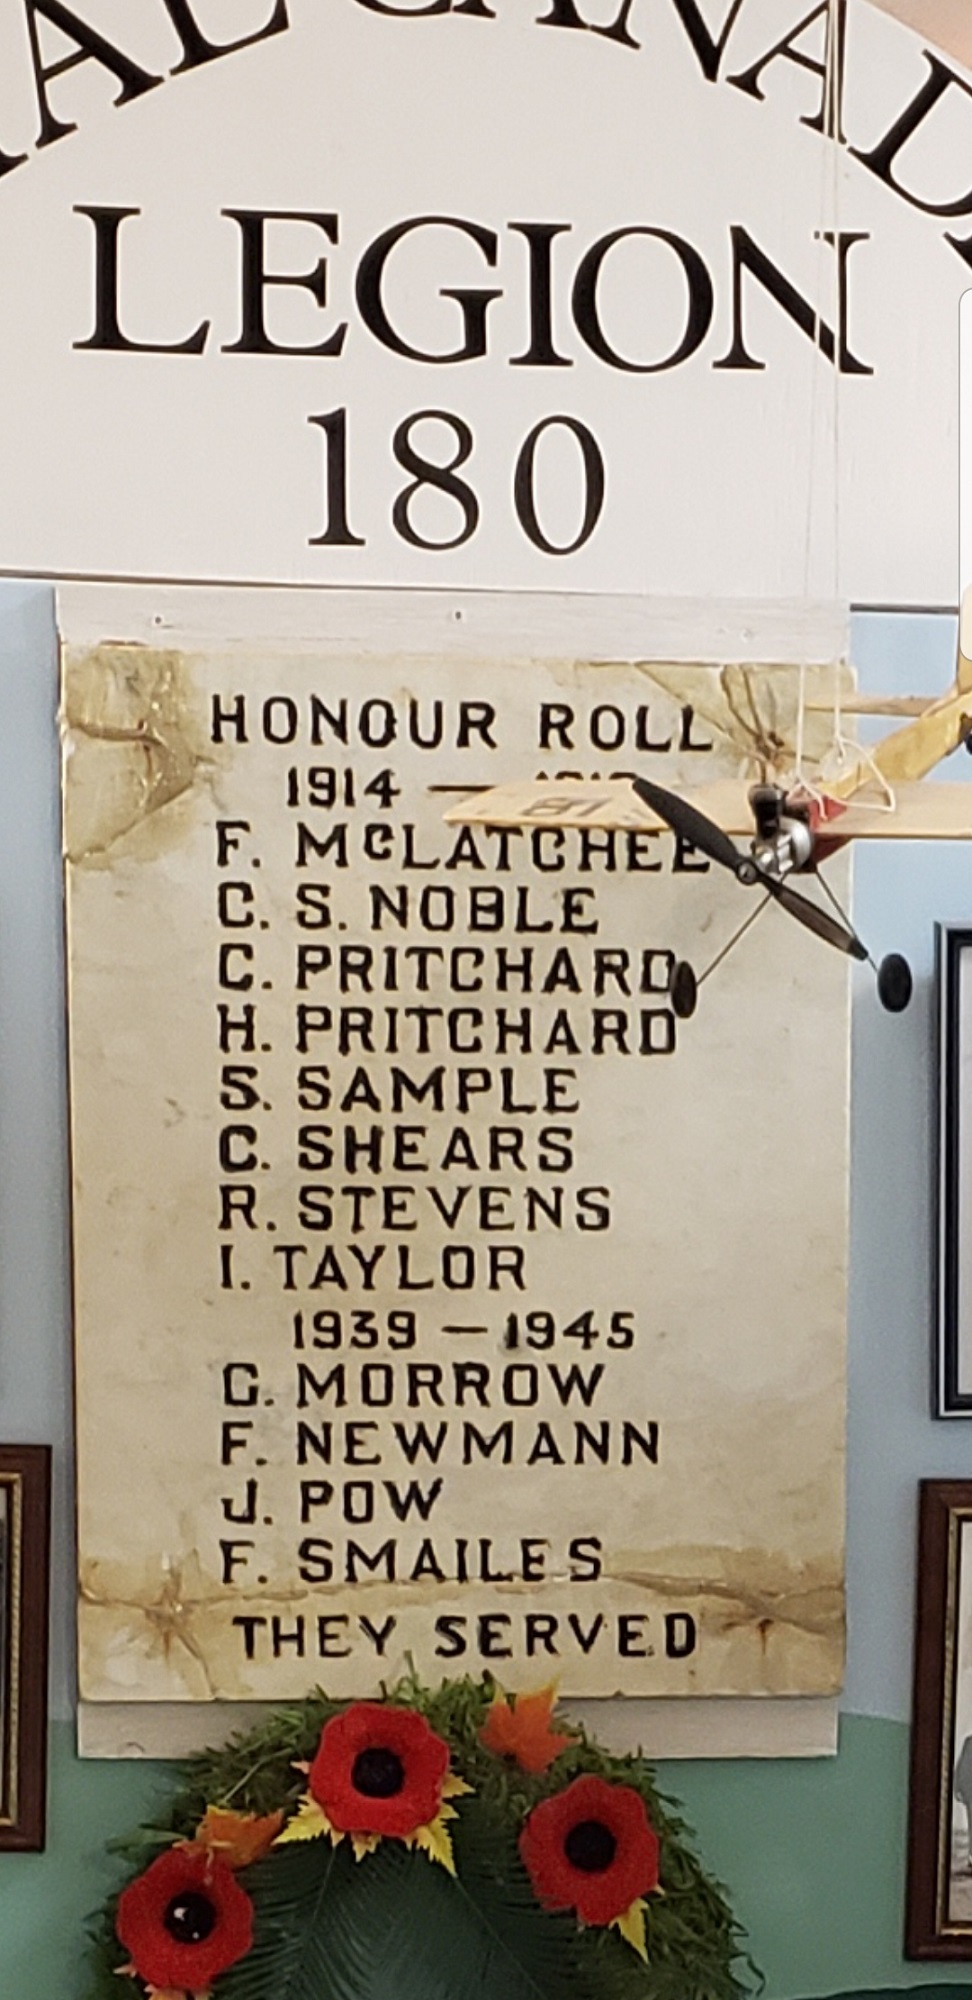 AL CANAD
LEGION
180
HONOUR ROLL
1914 —
F. McLATCHEE
C. S. NOBLE
C. PRITCHARD
H. PRITCHARD
S. SAMPLE
C. SHEARS
R. STEVENS
I. TAYLOR
1939 — 1945
C. MORROW
F. NEWMANN
J. POW
F. SMAILES
THEY SERVED